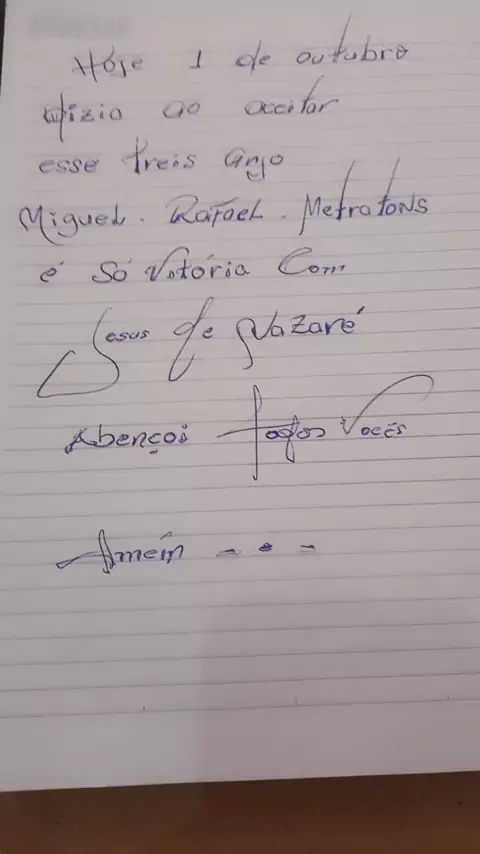 Hóje 1 de outubro
dizio ao aceitar
esse treis anjo
Miguel. Rafael. Metratons
é Só Vitória Com
Jesus de Nazaré
Abençoi todos Vocês
Amém - . -